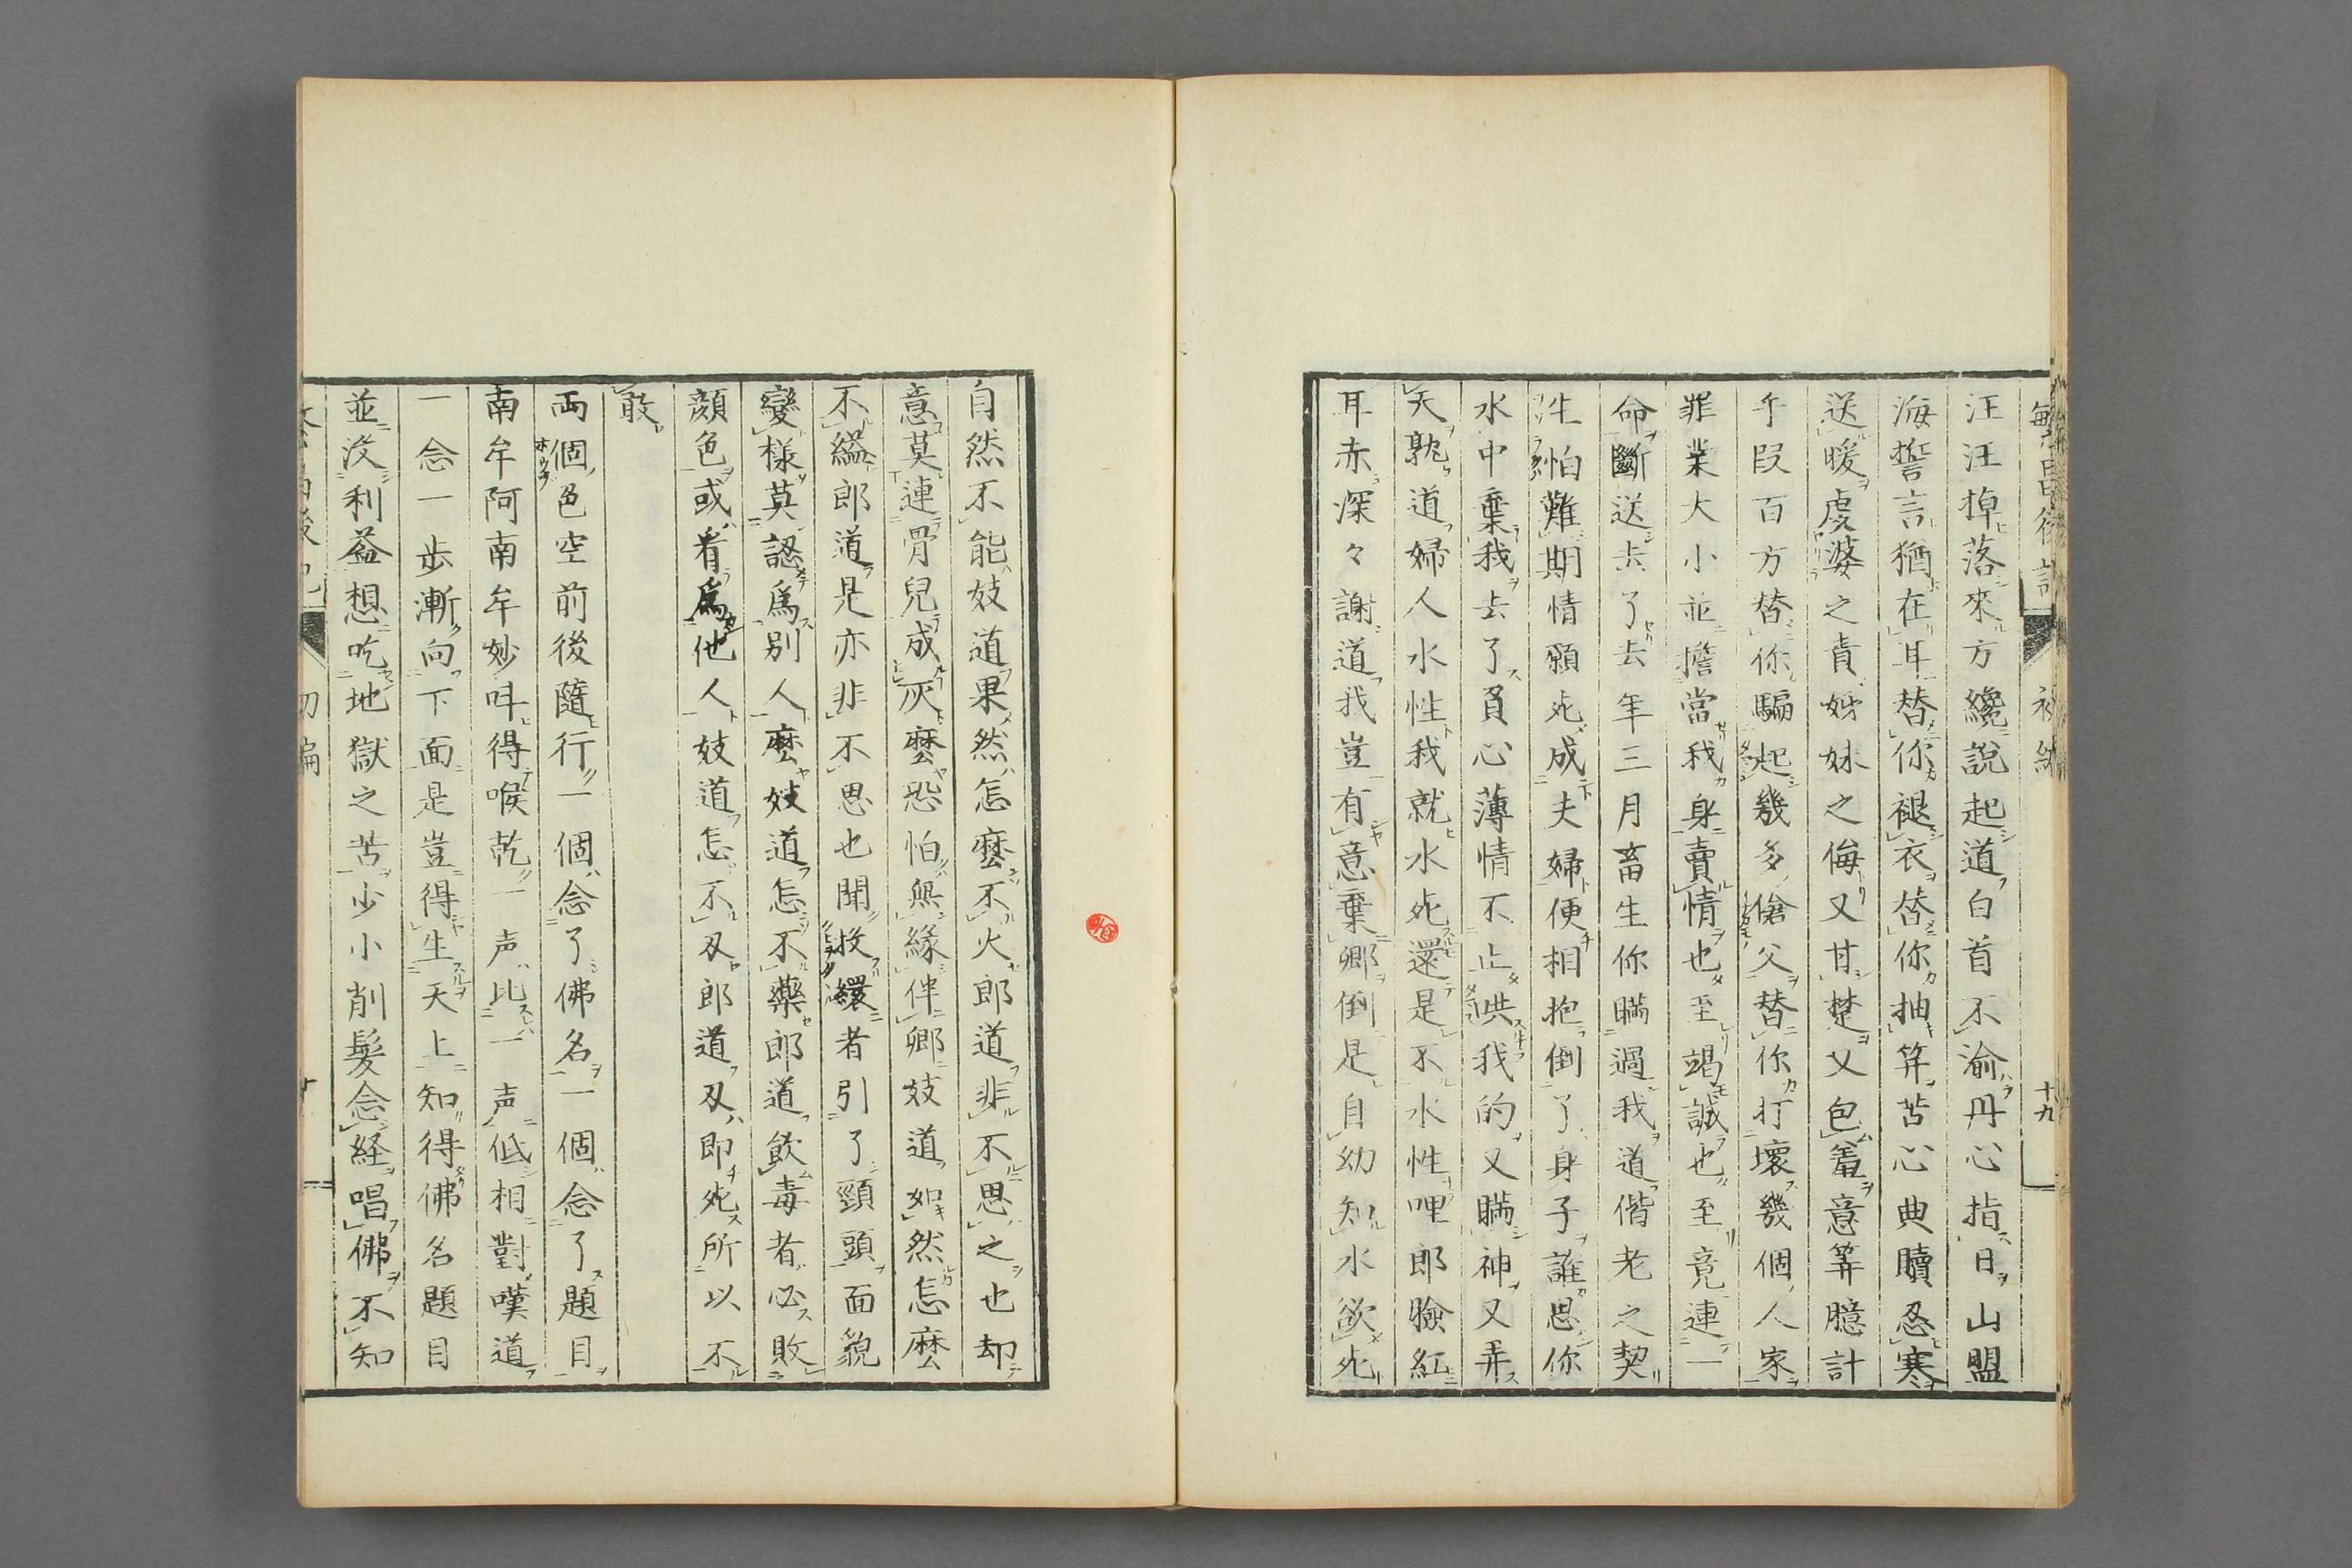 汪汪掉落來方纔說起道白首不渝丹心指日山盟
海誓言猶在耳替你褪衣替你抽筓苦心典贖忍寒
送暖虔婆之責姊妹之侮又甘楚又包羞意筭臆計
手段百方替你騙起幾多傖父替你打壞幾個人家
罪業大小並擔當我身賣情也至竭誠也至竟連一
命斷送去了去年三月畜生你瞞過我道偕老之契
生怕難期情願死成夫婦便相抱倒了身子誰思你
水中棄我去了負心薄情不止哄我的又瞞神又弄
天孰道婦人水性我就水死還是不水性哩郎臉紅
耳赤深々謝道我豈有意棄卿倒是自幼知水欲死
自然不能妓道果然怎麼不火郎道非不思之也却
意莫連骨兒成灰麼恐怕無緣伴卿妓道如然怎麼
不縊郎道是亦非不思也聞投繯者引了頸頭面貌
變樣莫認爲別人麼妓道怎不藥郎道飲毒者必敗
顔色或看爲他人妓道怎不刃郎道刃即死所以不
敢
両個色空前後隨行一個念了佛名一個念了題目
南牟阿南牟妙呌得喉乾一声比一声低相對嘆道
一念一歩漸向下面是豈得生天上知得佛名題目
並没利益想吃地獄之苦少小削髮念経唱佛不知
初編
十九